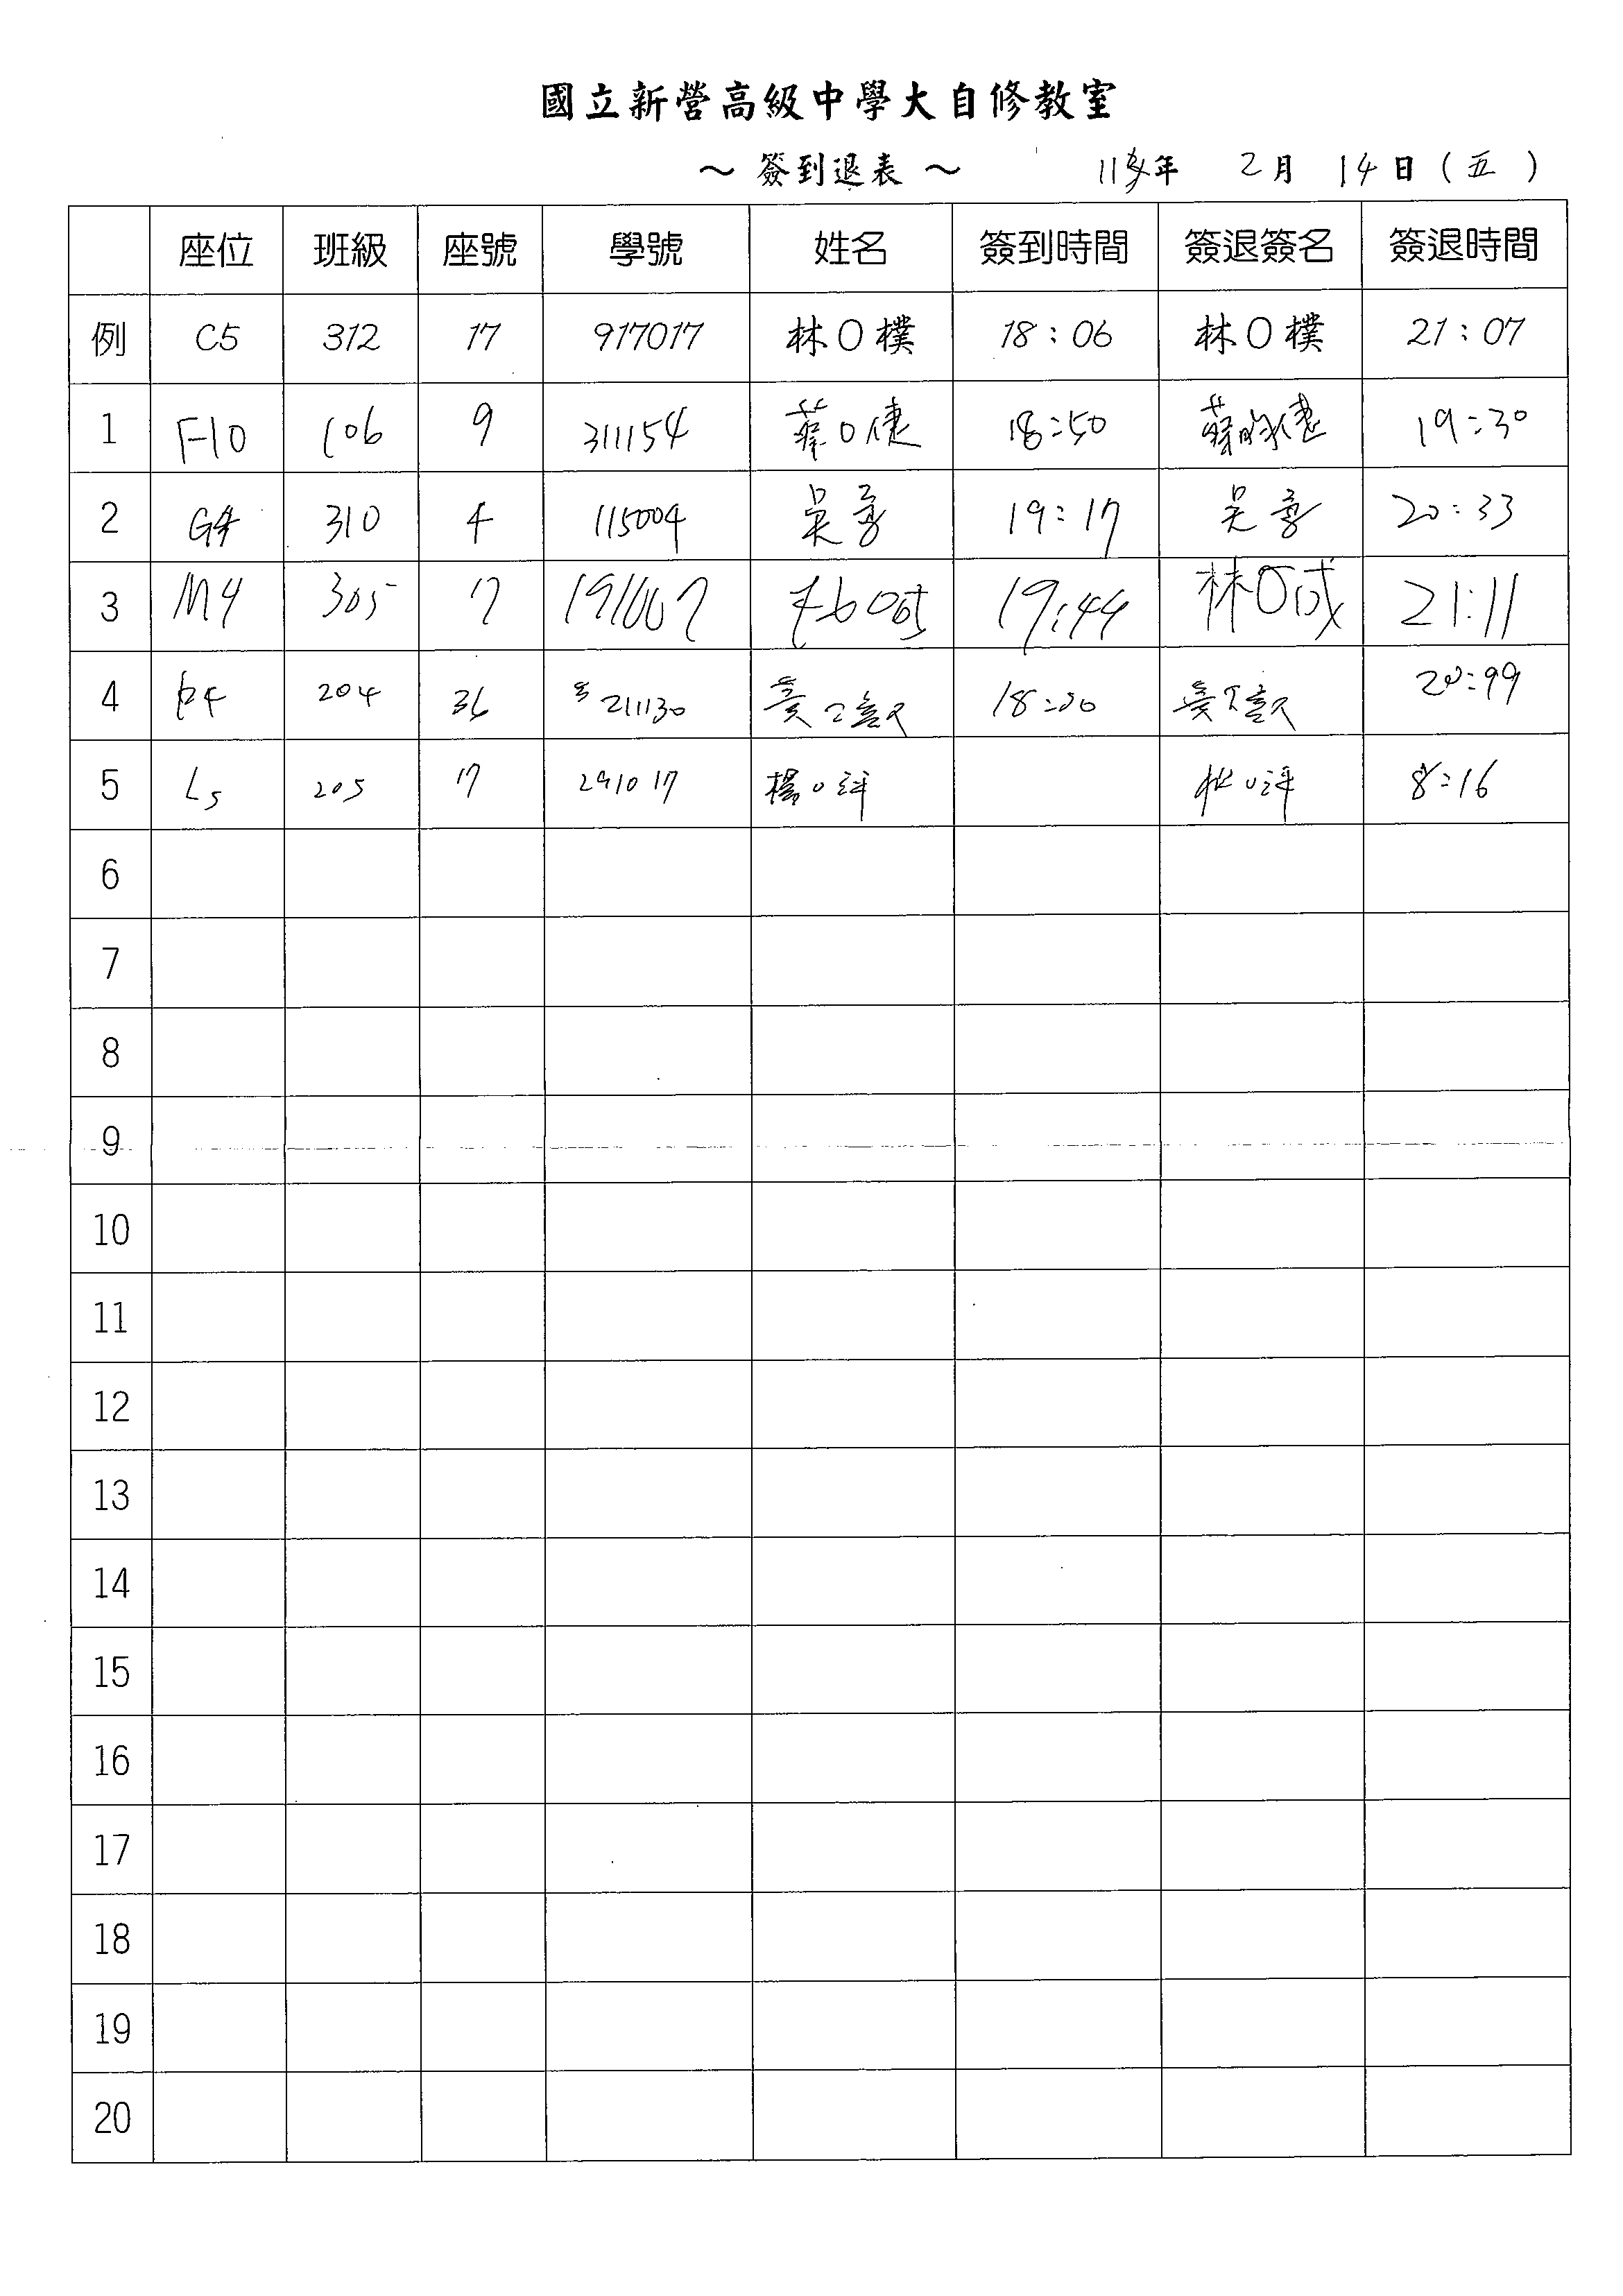 國立新營高級中學大自修教室
～ 簽到退表 ～ 年 2月 14日(五)
座位 班級 座號 學號 姓名 簽到時間 簽退簽名 簽退時間
例 C5 312 17 917017 林O樸 18:06 林O樸 21:07
1 F10 106 9 311154 蔡O倢 18:50 19:30
2 G4 310 4 115004 吳 19:17 吳 20:33
3 M4 305 7 19:44 林O成 21:11
4 204 36 211130 黃 黃 20:99
5 L5 205 17 291017 楊O評 O評 8:16
6
7
8
9
10
11
12
13
14
15
16
17
18
19
20